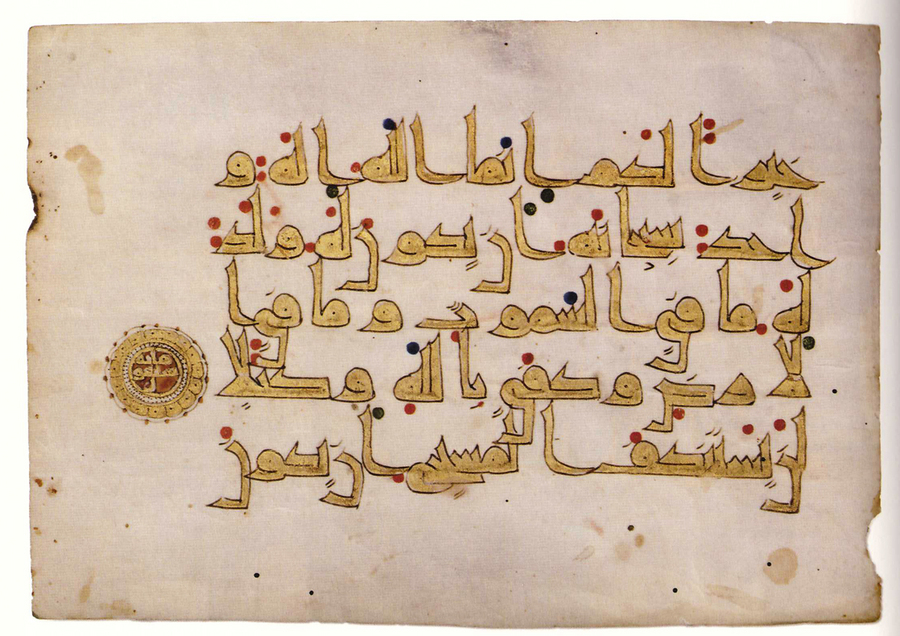 خيرا لكم انما الله اله و
احد سبحنه ان يكون له ولد
له ما في السموت وما في ا
لارض وكفى بالله وكيلا
لن يستنكف المسيح ان يكون